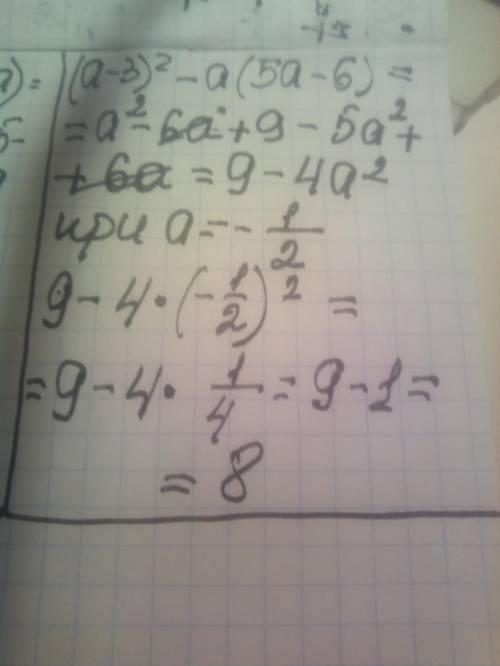 a) =
(a-3)² - a(5a-6) =
5-
= a² - 6a + 9 - 5a² +
+ 6a = 9 - 4a²
при a = - 1/2
9 - 4 · (- 1/2)² =
= 9 - 4 · 1/4 = 9 - 1 =
= 8